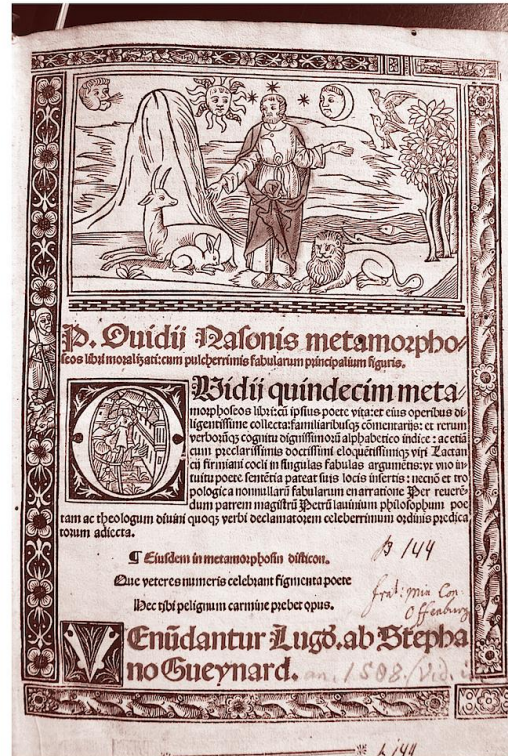 P. Ouidij Nasonis metamorpho⸗
seos libri moralizati: cum pulcherrimis fabularum principalium figuris.
OVidij quindecim meta⸗
morphoseos libri: cū ipsius poete vita: et eius operibus di
ligentissime collecta: familiaribusqȝ cōmentarijs: et rerum
verborūqȝ cognitu dignissimorū alphabetico indice: ac etiā
cum preclarissimis doctissimi eloquētissimiqȝ viri Lactan
cij firmiani coeli in singulas fabulas argumētis: vt vno in
tuitu poete sentētia pateat suis locis insertis: necnō et tro
pologica nonnullarū fabularum enarratione Per reuerē⸗
dum patrem magistrū Petrū lauinium philosophum poe
tam ac theologum diuini quoqȝ verbi declamatorem celeberrimum ordinis predica
torum adiecta.
¶ Eiusdem in metamorphosin disticon.
Que veteres numeris celebrant figmenta poete
Hec tibi pelignum carmine prebet opus.
B 144
frat: Min Con
Offenburg
VEnūdantur Lugd. ab Stepha
no Gueynard.
an. 1508.
L 144